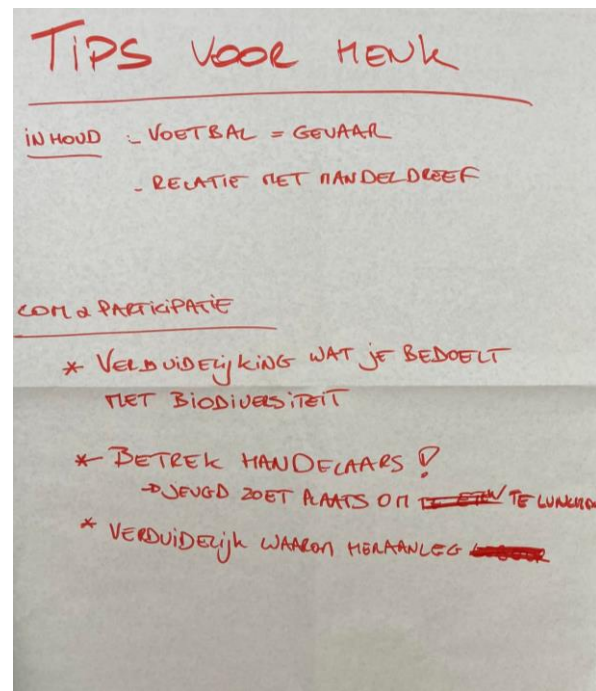 TIPS VOOR HENK
INHOUD - VOETBAL = GEVAAR
- RELATIE MET MANDELDREEF
COM & PARTICIPATIE
* VERDUIDELIJKING WAT JE BEDOELT
MET BIODIVERSITEIT
* BETREK HANDELAARS !
→ JEUGD ZOET PLAATS OM TE
* VERDUIDELIJK WAAROM HERAANLEG